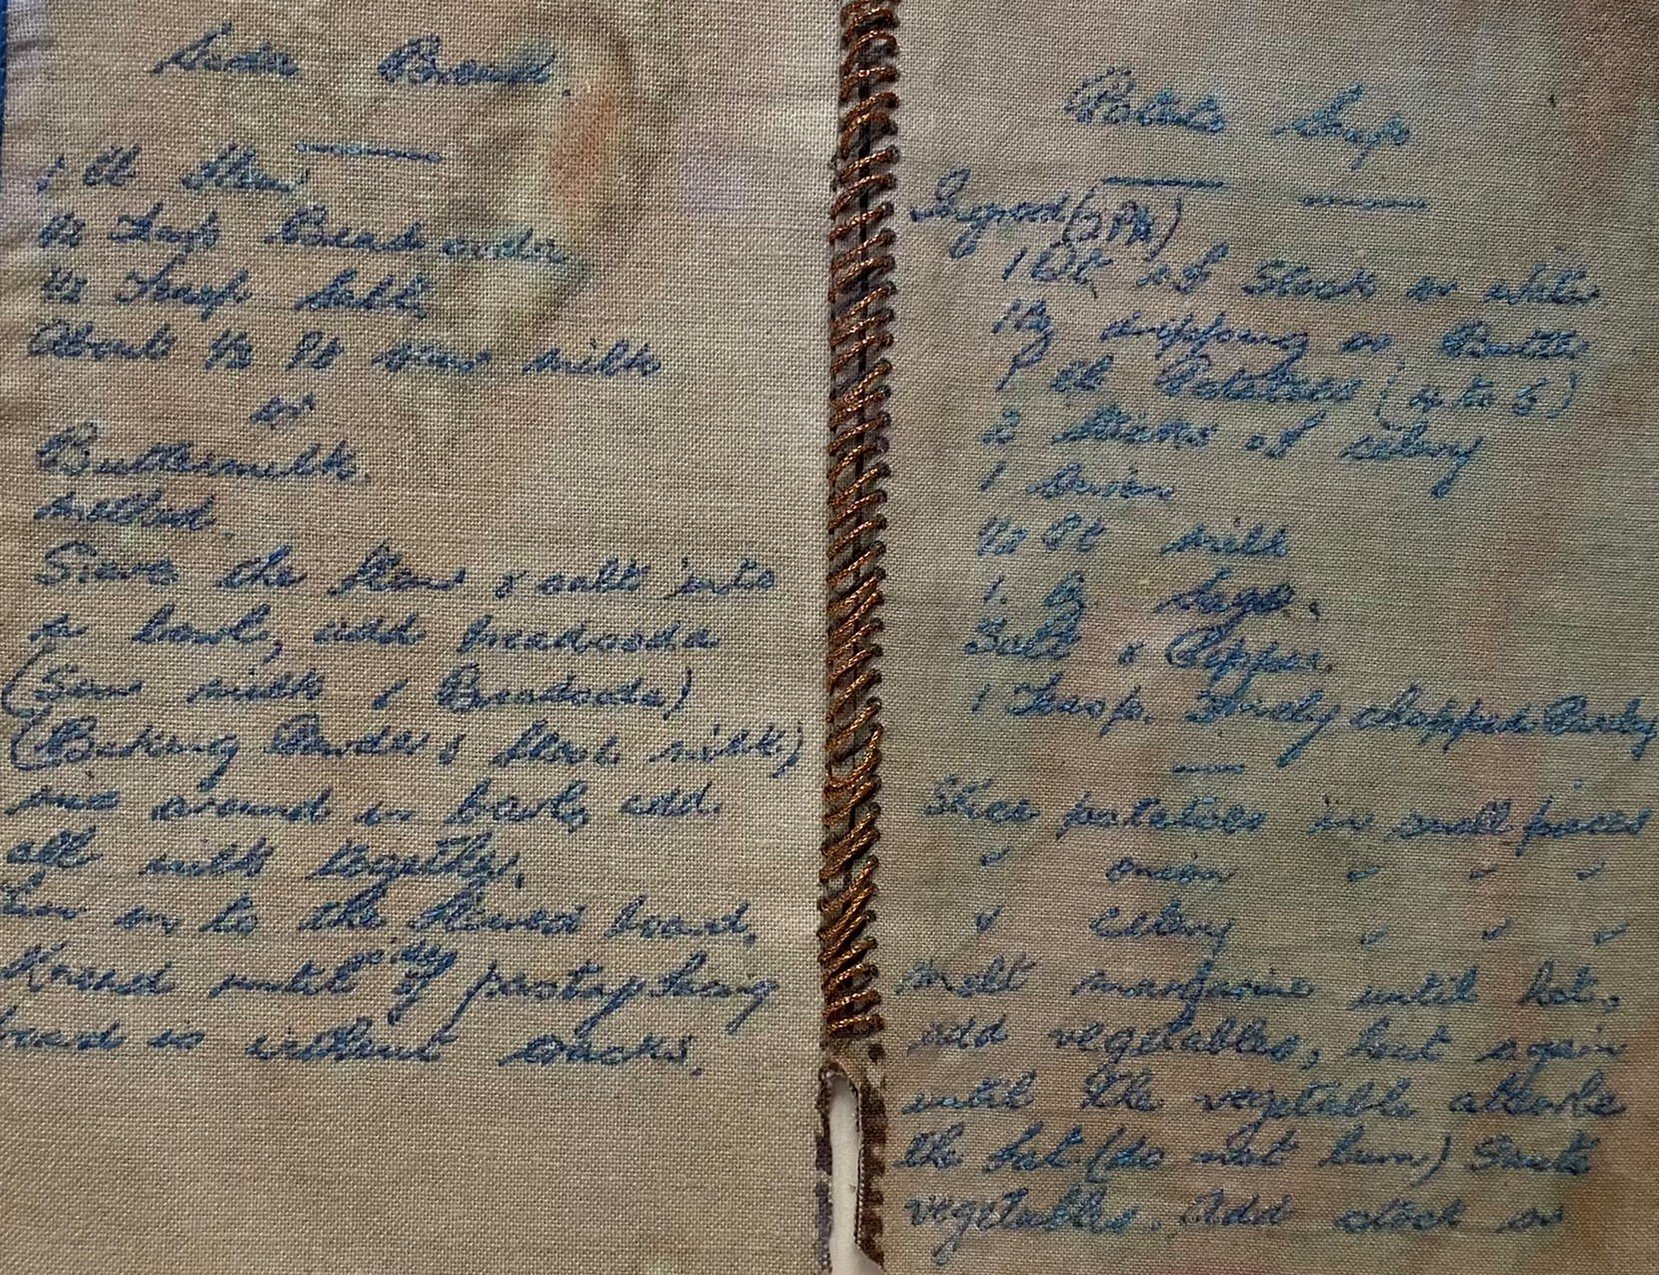 Soda Bread.
1 lb Flour
1/2 Teasp Bread soda
1/2 Teasp Salt
About 1/2 Pt sour milk
or
Buttermilk.
method.
Sieve the flour & salt into
a bowl, add breadsoda
(Sour milk & Breadsoda)
(Baking Powder & fresh milk)
mix around in bowl, add
all milk together.
turn on to the floured board.
Knead until side of pastry facing
board is without cracks.
Potato Soup
Ingred (3 Pts)
1 Qt of Stock or water
1 oz dripping or Butter
1 lb Potatoes (up to 6)
2 sticks of celery
1 onion
1/2 Pt milk
1 oz Sago.
Salt & Pepper.
1 Teasp. Finely chopped Parsley
Slice potatoes in small pieces
" onion " " "
" celery " " "
melt margarine until hot.
add vegetables, heat again
until the vegetable absorbs
the fat (do not burn) Saute
vegetables. Add stock or